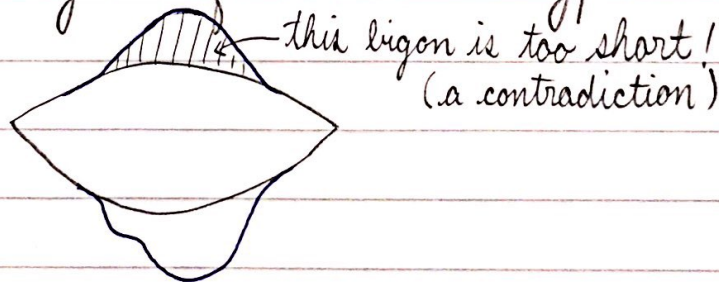 this bigon is too short!
(a contradiction)